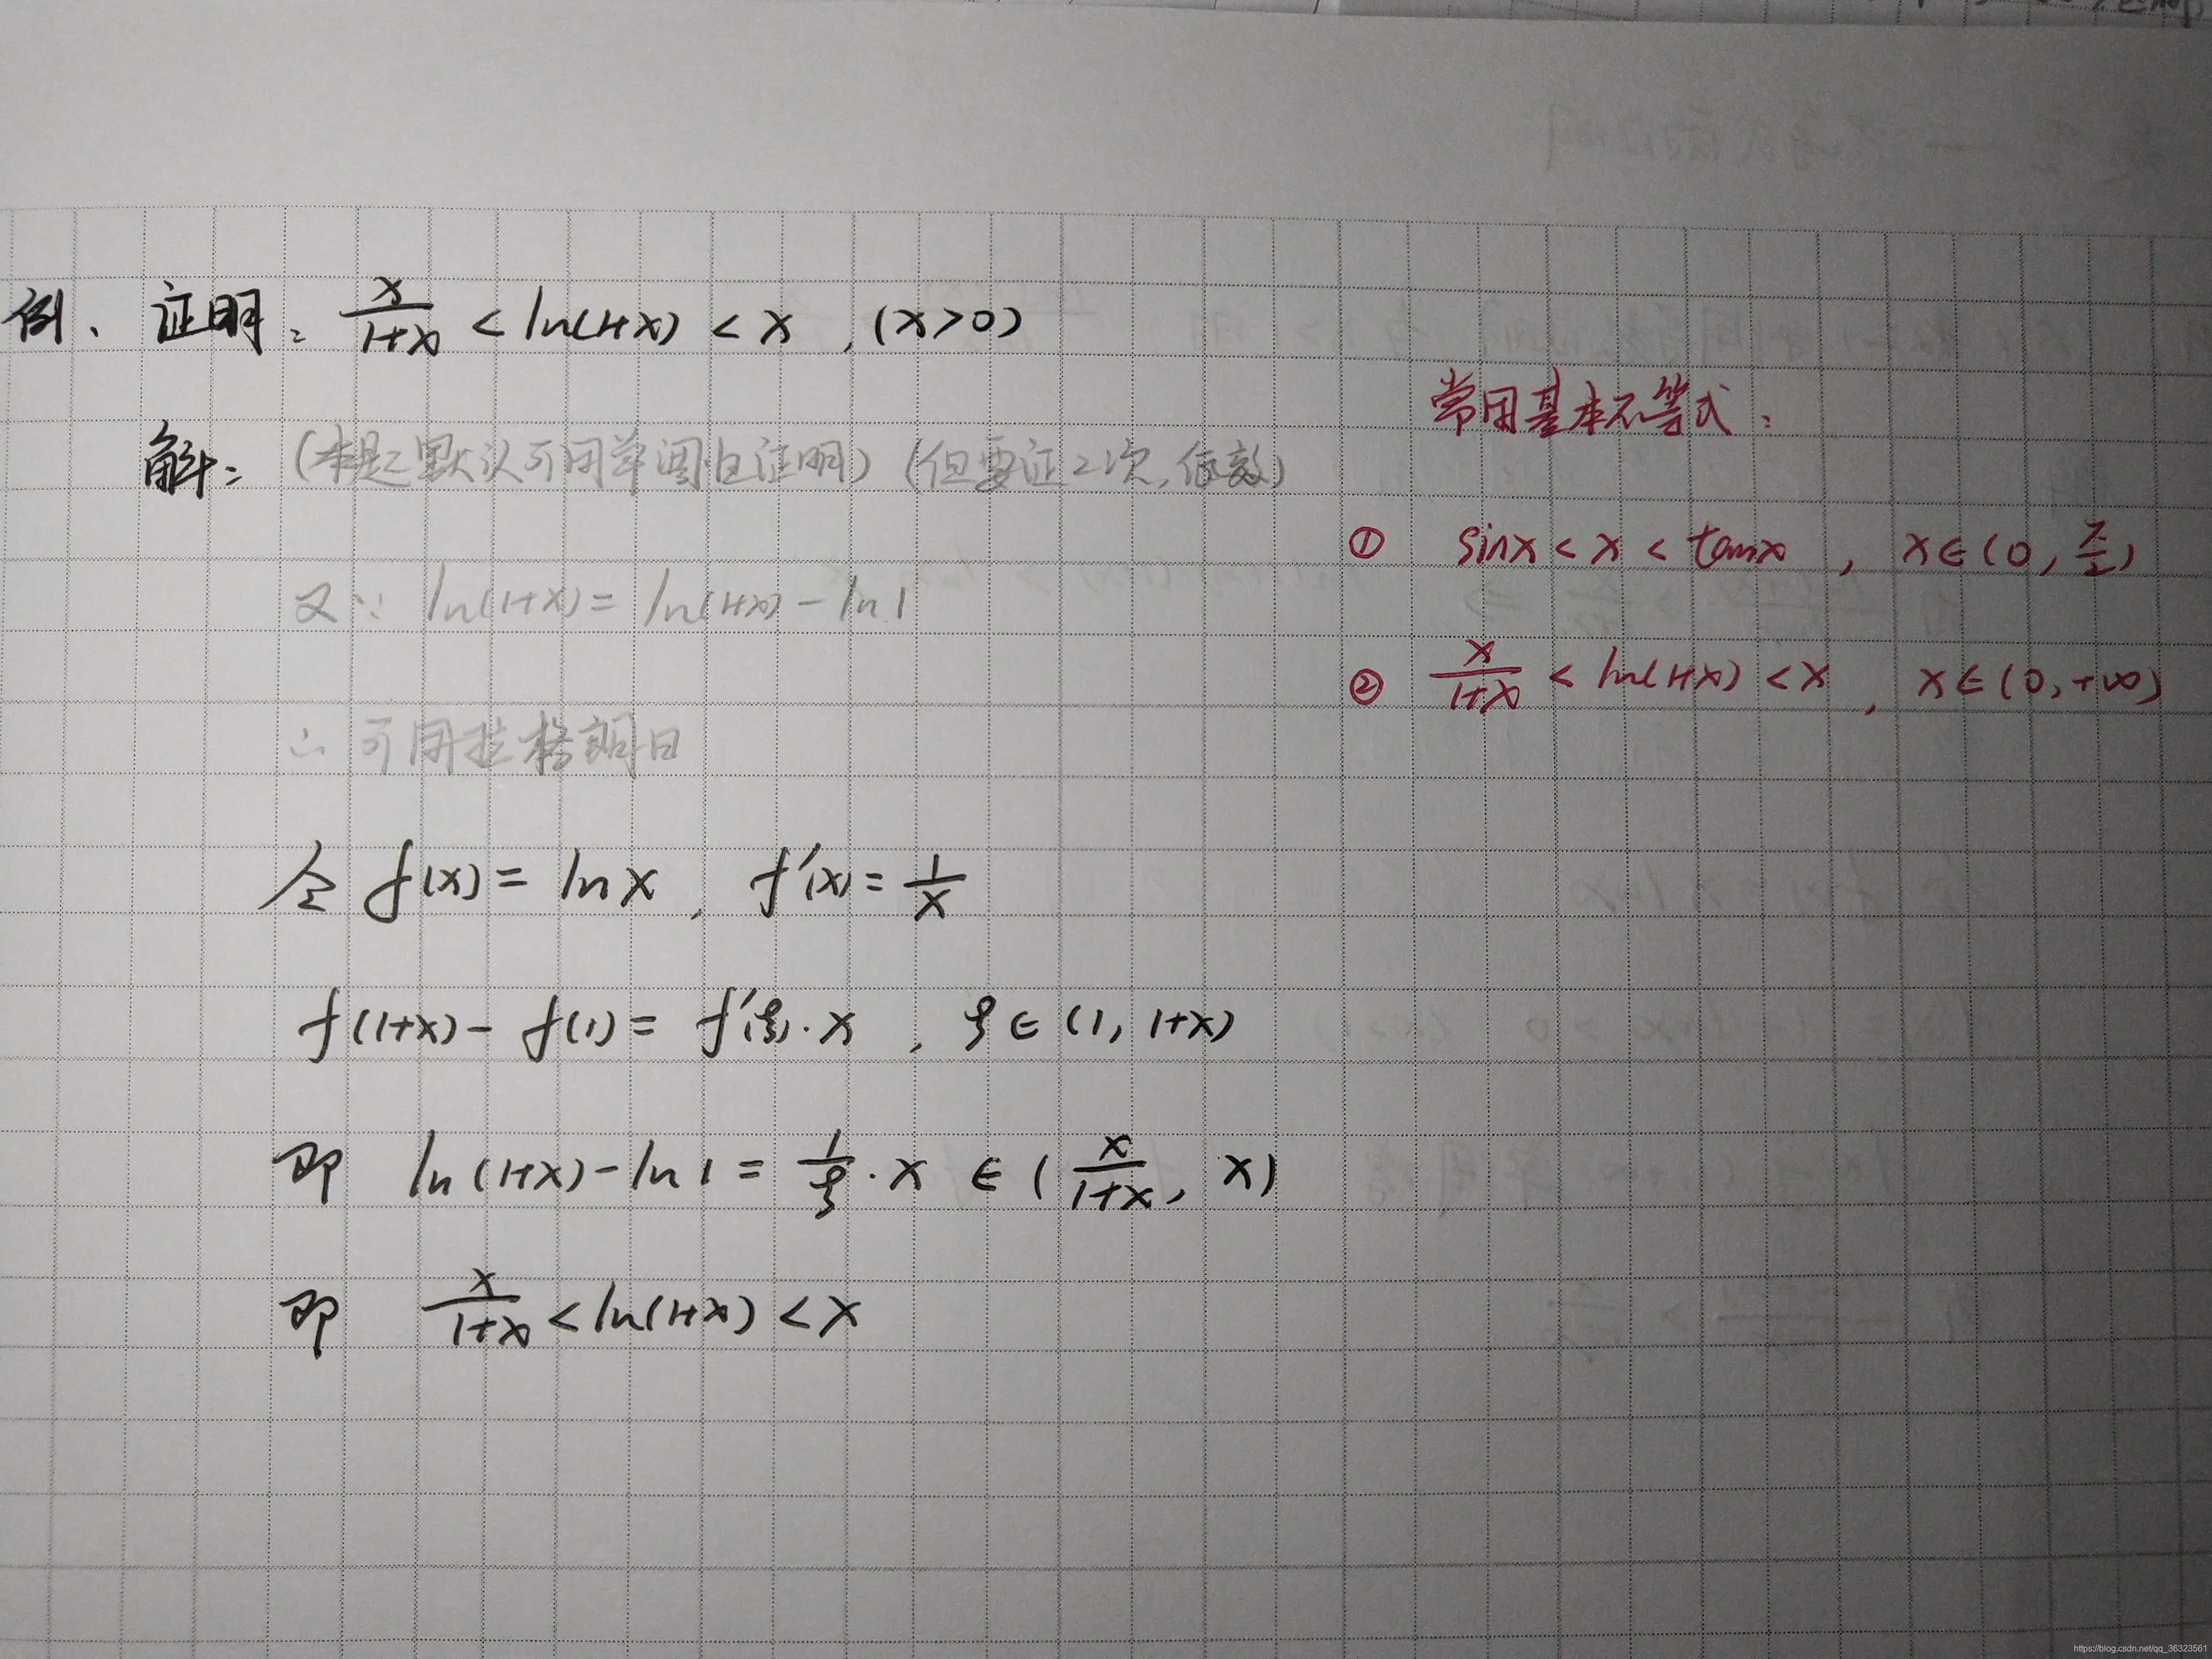 例、证明: x/(1+x) < ln(1+x) < x , (x>0)
解: (本题默认可用单调性证明) (但要证2次,
又∵ ln(1+x) = ln(1+x) - ln1
∴ 可用拉格朗日
令 f(x) = lnx , f'(x) = 1/x
f(1+x) - f(1) = f'(ξ)·x , ξ∈(1, 1+x)
即 ln(1+x) - ln1 = 1/ξ · x ∈ ( x/(1+x), x)
即 x/(1+x) < ln(1+x) < x
常用基本不等式:
① sinx < x < tanx , x∈(0, π/2)
② x/(1+x) < ln(1+x) < x , x∈(0,+∞)
https://blog.csdn.net/qq_36323561